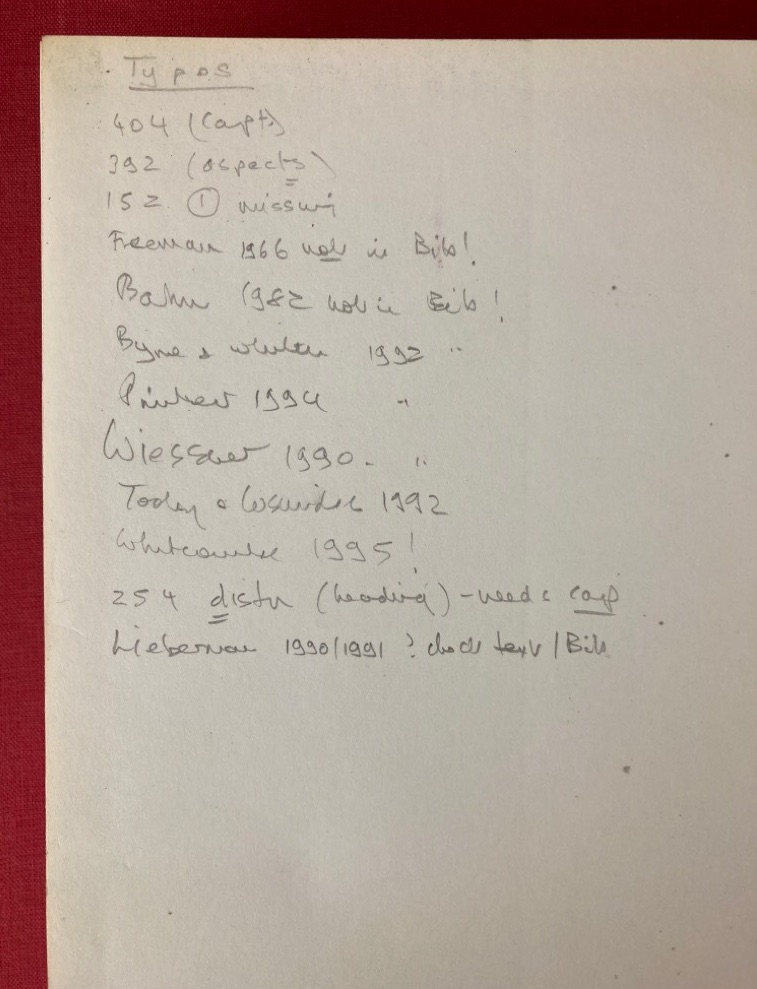 Typos
404 (Capt.)
392 (aspects)
152 ① missing
Freeman 1966 not in Bib!
Bahn 1982 not in Bib!
Byrne & Whiten 1992 "
Pinker 1994 "
Wiessner 1990. "
Today & 1992
Whitcombe 1995!
254 distn (heading) - needs cap
Lieberman 1990/1991 ? check text / Bib